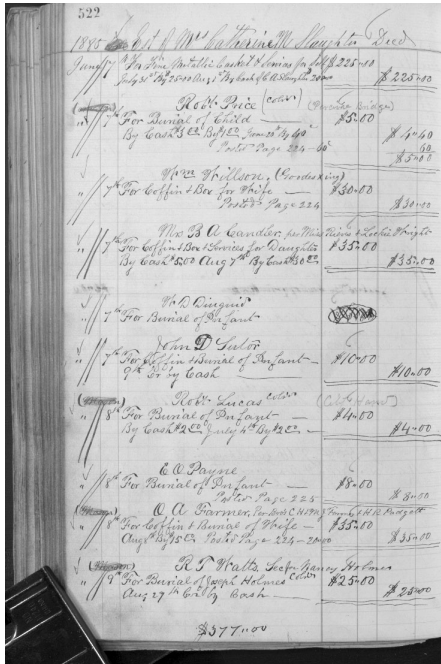 522
1885 Est of Mrs Catherine M Slaughter Decd
June 7th For Fine Metallic Casket & Services for Self $225.00
July 31st By $25.00 Aug 1st By Cash of C A Slaughter 200.00 $225.00
Robt Price (Cold)
" 7th For Burial of Child — $5.00
By Cash $3.00 By $1.00 June 20th By 40c $4.40
Posted Page 224 - 60c 60
$5.00
Wm Willson,
" 7th For Coffin & Box for Wife — $30.00
Posted Page 224 $30.00
Mr B A Candler, per
" 7th For Coffin & Box & Services for Daughter $35.00
By Cash $5.00 Aug 7th By Cash $30.00 $35.00
W D Diuguid
" 7th For Burial of Infant
John D
" 7th For Coffin & Burial of Infant — $10.00
9th Cr by Cash $10.00
Robt Lucas Cold
" 8th For Burial of Infant — $4.00
By Cash $2.00 July 4th By $2.00 — $4.00
E O Payne
" 8th For Burial of Infant — $8.00
Posted Page 225 $8.00
O A Farmer, & H R Padgett
" 8th For Coffin & Burial of Wife — $35.00
Aug 8th By 15.00 Posted Page 224 - 20.00 $35.00
R T Watts, Nancy Holmes
" 9th For Burial of Joseph Holmes Cold $25.00
Aug 27th Cr by Cash — $25.00
$377.00